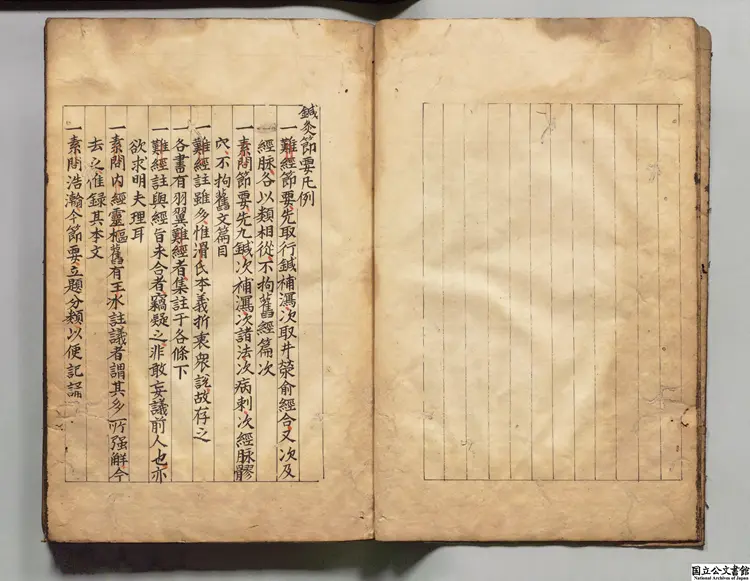 鍼灸節要凡例
一難經節要先取行鍼補瀉次取井滎俞經合又次及
經脉各以類相從不拘舊經篇次
一素問節要先九鍼次補瀉次諸法次病刺次經脉髎
穴不拘舊文篇目
一難經註雖多惟滑氏本義折衷衆說故存之
一各書有羽翼難經者集註于各條下
一難經註與經旨未合者竊疑之非敢妄議前人也亦
欲求明夫理耳
一素問內經靈樞舊有王氷註議者謂其多所强解今
去之惟録其本文
一素問浩瀚今節要立題分類以便記誦
国立公文書館
National Archives of Japan